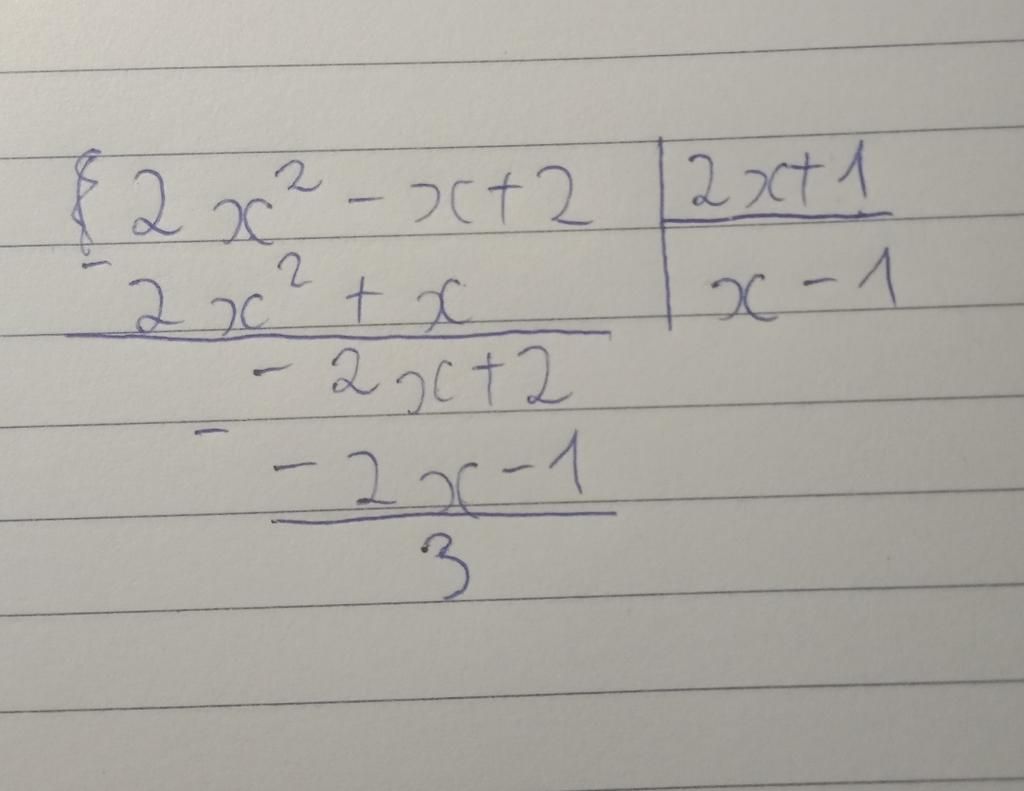 2x² - x + 2 | 2x + 1
- 2x² + x | x - 1
- 2x + 2
- - 2x - 1
3